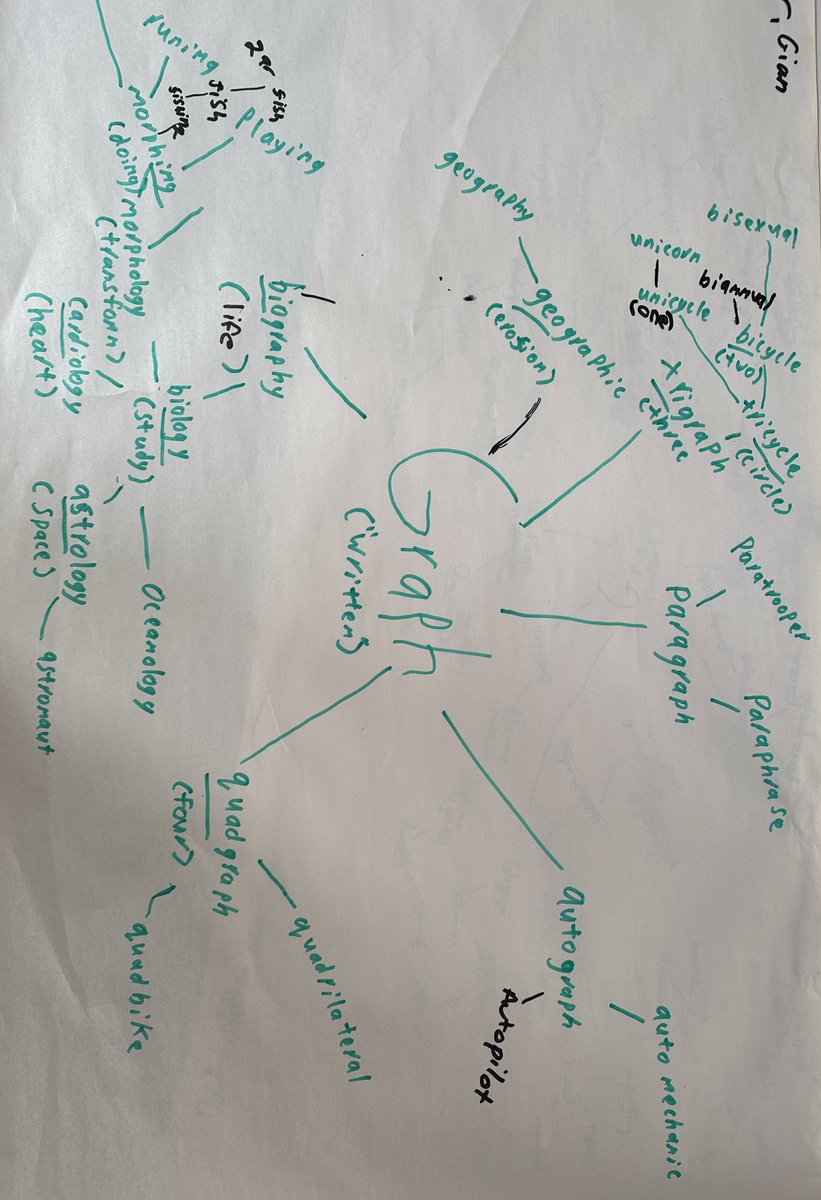 r, Gian
bisexual
unicorn
biannual
unicycle
(one)
bicycle
(two)
tricycle
(circle)
trigraph
(three
geography
geographic
(erosion)
paratrooper
paragraph
Paraphrase
Graph
("written")
biography
(life)
biology
(study)
Oceanology
astrology
(space)
astronaut
cardiology
(heart)
morphology
(transform)
morphing
(doing)
runing
playing
fish
fish
quadgraph
(four)
quadrilateral
quadbike
autograph
Autopilot
auto mechanic